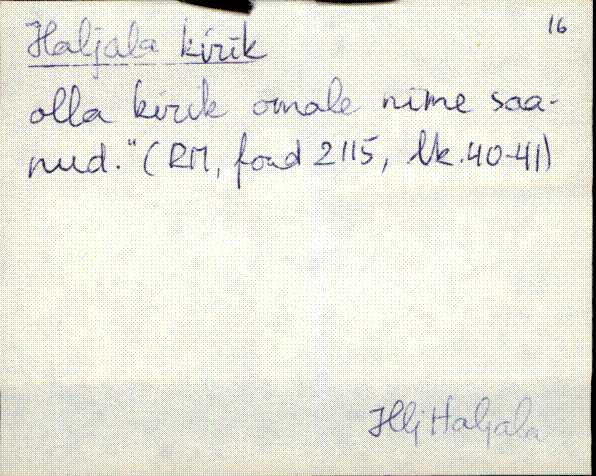 16
Haljala kirik
olla kirik omale nime saa-
nud." (RM, fond 2115, lk. 40-41)
Hlj Haljala